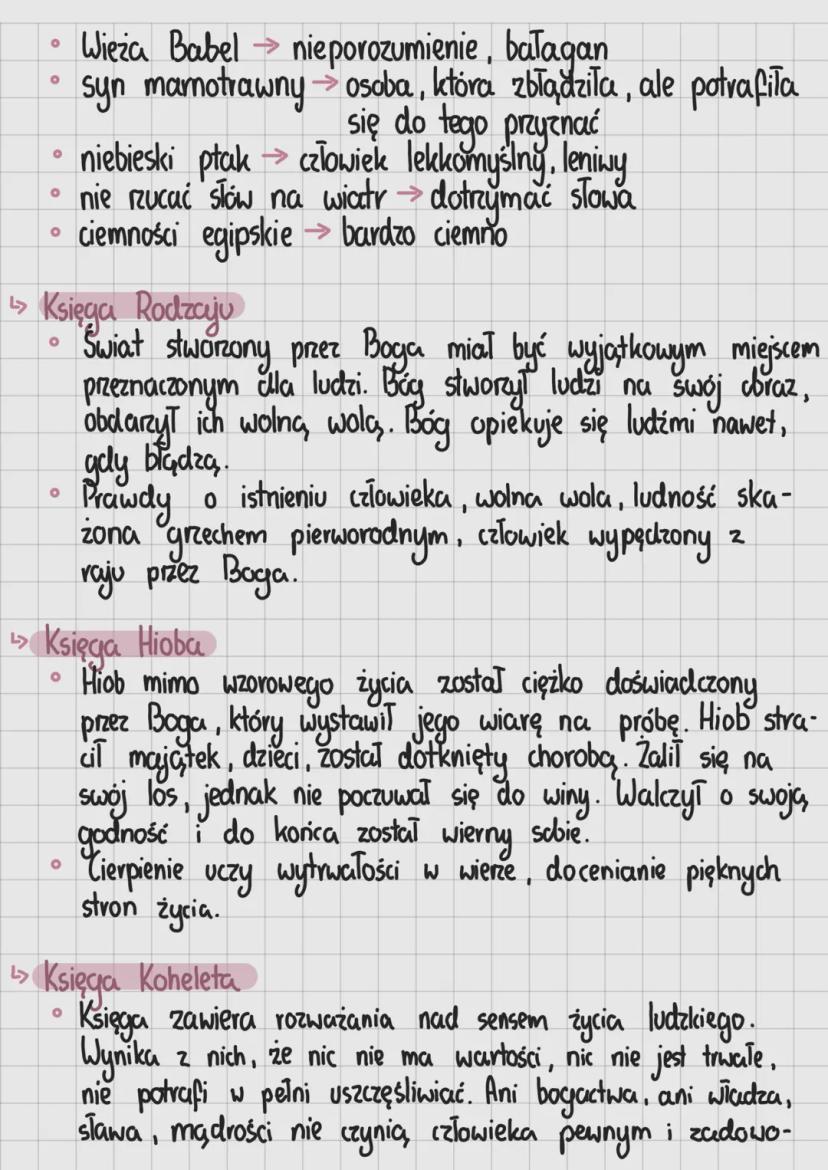 ° Wieża Babel → nieporozumienie, bałagan
° syn marnotrawny → osoba, która zbłądziła, ale potrafiła
się do tego przyznać
° niebieski ptak → człowiek lekkomyślny, leniwy
° nie rzucać słów na wiatr → dotrzymać słowa
° ciemności egipskie → bardzo ciemno
↳ Księga Rodzaju
° Świat stworzony przez Boga miał być wyjątkowym miejscem
przeznaczonym dla ludzi. Bóg stworzył ludzi na swój obraz,
obdarzył ich wolną wolą. Bóg opiekuje się ludźmi nawet,
gdy błądzą.
° Prawdy o istnieniu człowieka, wolna wola, ludność ska-
żona grzechem pierworodnym, człowiek wypędzony z
raju przez Boga.
↳ Księga Hioba
° Hiob mimo wzorowego życia został ciężko doświadczony
przez Boga, który wystawił jego wiarę na próbę. Hiob stra-
cił majątek, dzieci, został dotknięty chorobą. Żalił się na
swój los, jednak nie poczuwał się do winy. Walczył o swoją
godność i do końca został wierny sobie.
° Cierpienie uczy wytrwałości w wierze, docenianie pięknych
stron życia.
↳ Księga Koheleta
° Księga zawiera rozważania nad sensem życia ludzkiego.
Wynika z nich, że nic nie ma wartości, nic nie jest trwałe,
nie potrafi w pełni uszczęśliwiać. Ani bogactwa, ani władza,
sława, mądrości nie czynią człowieka pewnym i zadowo-